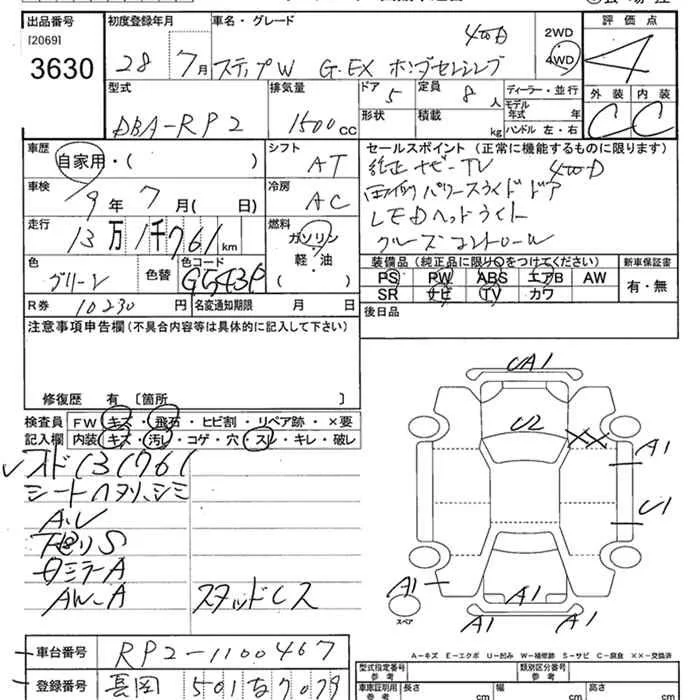 出品番号
[2069]
3630
初度登録年月
28 7月
車名・グレード
ステップW G.EX ホンダセンシング
4WD
2WD
4WD
評価点
4
外装 内装
C C
型式
DBA-RP2
排気量
1500cc
ドア 5
形状
定員 8 人
積載 kg
ディーラー・並行
モデル年式 年
ハンドル 左・右
車歴
自家用・( )
シフト
AT
車検
9年7月( 日)
冷房
AC
走行
13万1千761km
燃料
ガソリン
軽・油
( )
色
グリーン
色替
色コード
GG43P
R券 10230円
名変通知期限 月 日
セールスポイント (正常に機能するものに限ります)
純正ナビーTV 4WD
両側パワースライドドア
LEDヘッドライト
クルーズコントロール
装備品 (純正品に限り○をつけてください)
PS PW ABS エアB AW
SR ナビ TV カワ
新車保証書
有・無
後日品
注意事項申告欄 (不具合内容等は具体的に記入して下さい)
修復歴 有 [箇所 ]
検査員記入欄
FW キズ・飛石・ヒビ割・リペア跡・×要
内装 キズ・汚レ・コゲ・穴・スレ・キレ・破レ
オド131761
シートヘタリ、シミ
A.U
下廻りS
ミラーA
AW-A
スタッドレス
UA1
U2
XX
A1
U1
A1
A1
A1
A1
スペア
A-キズ E-エクボ U-凹み W-補修跡 S-サビ C-腐食 XX-交換済
車台番号
RP2-1100467
登録番号
長岡 501 な 7079
型式指定番号
参考
類別区分番号
参考
車庫証明用
参考
長さ cm
幅 cm
高さ cm